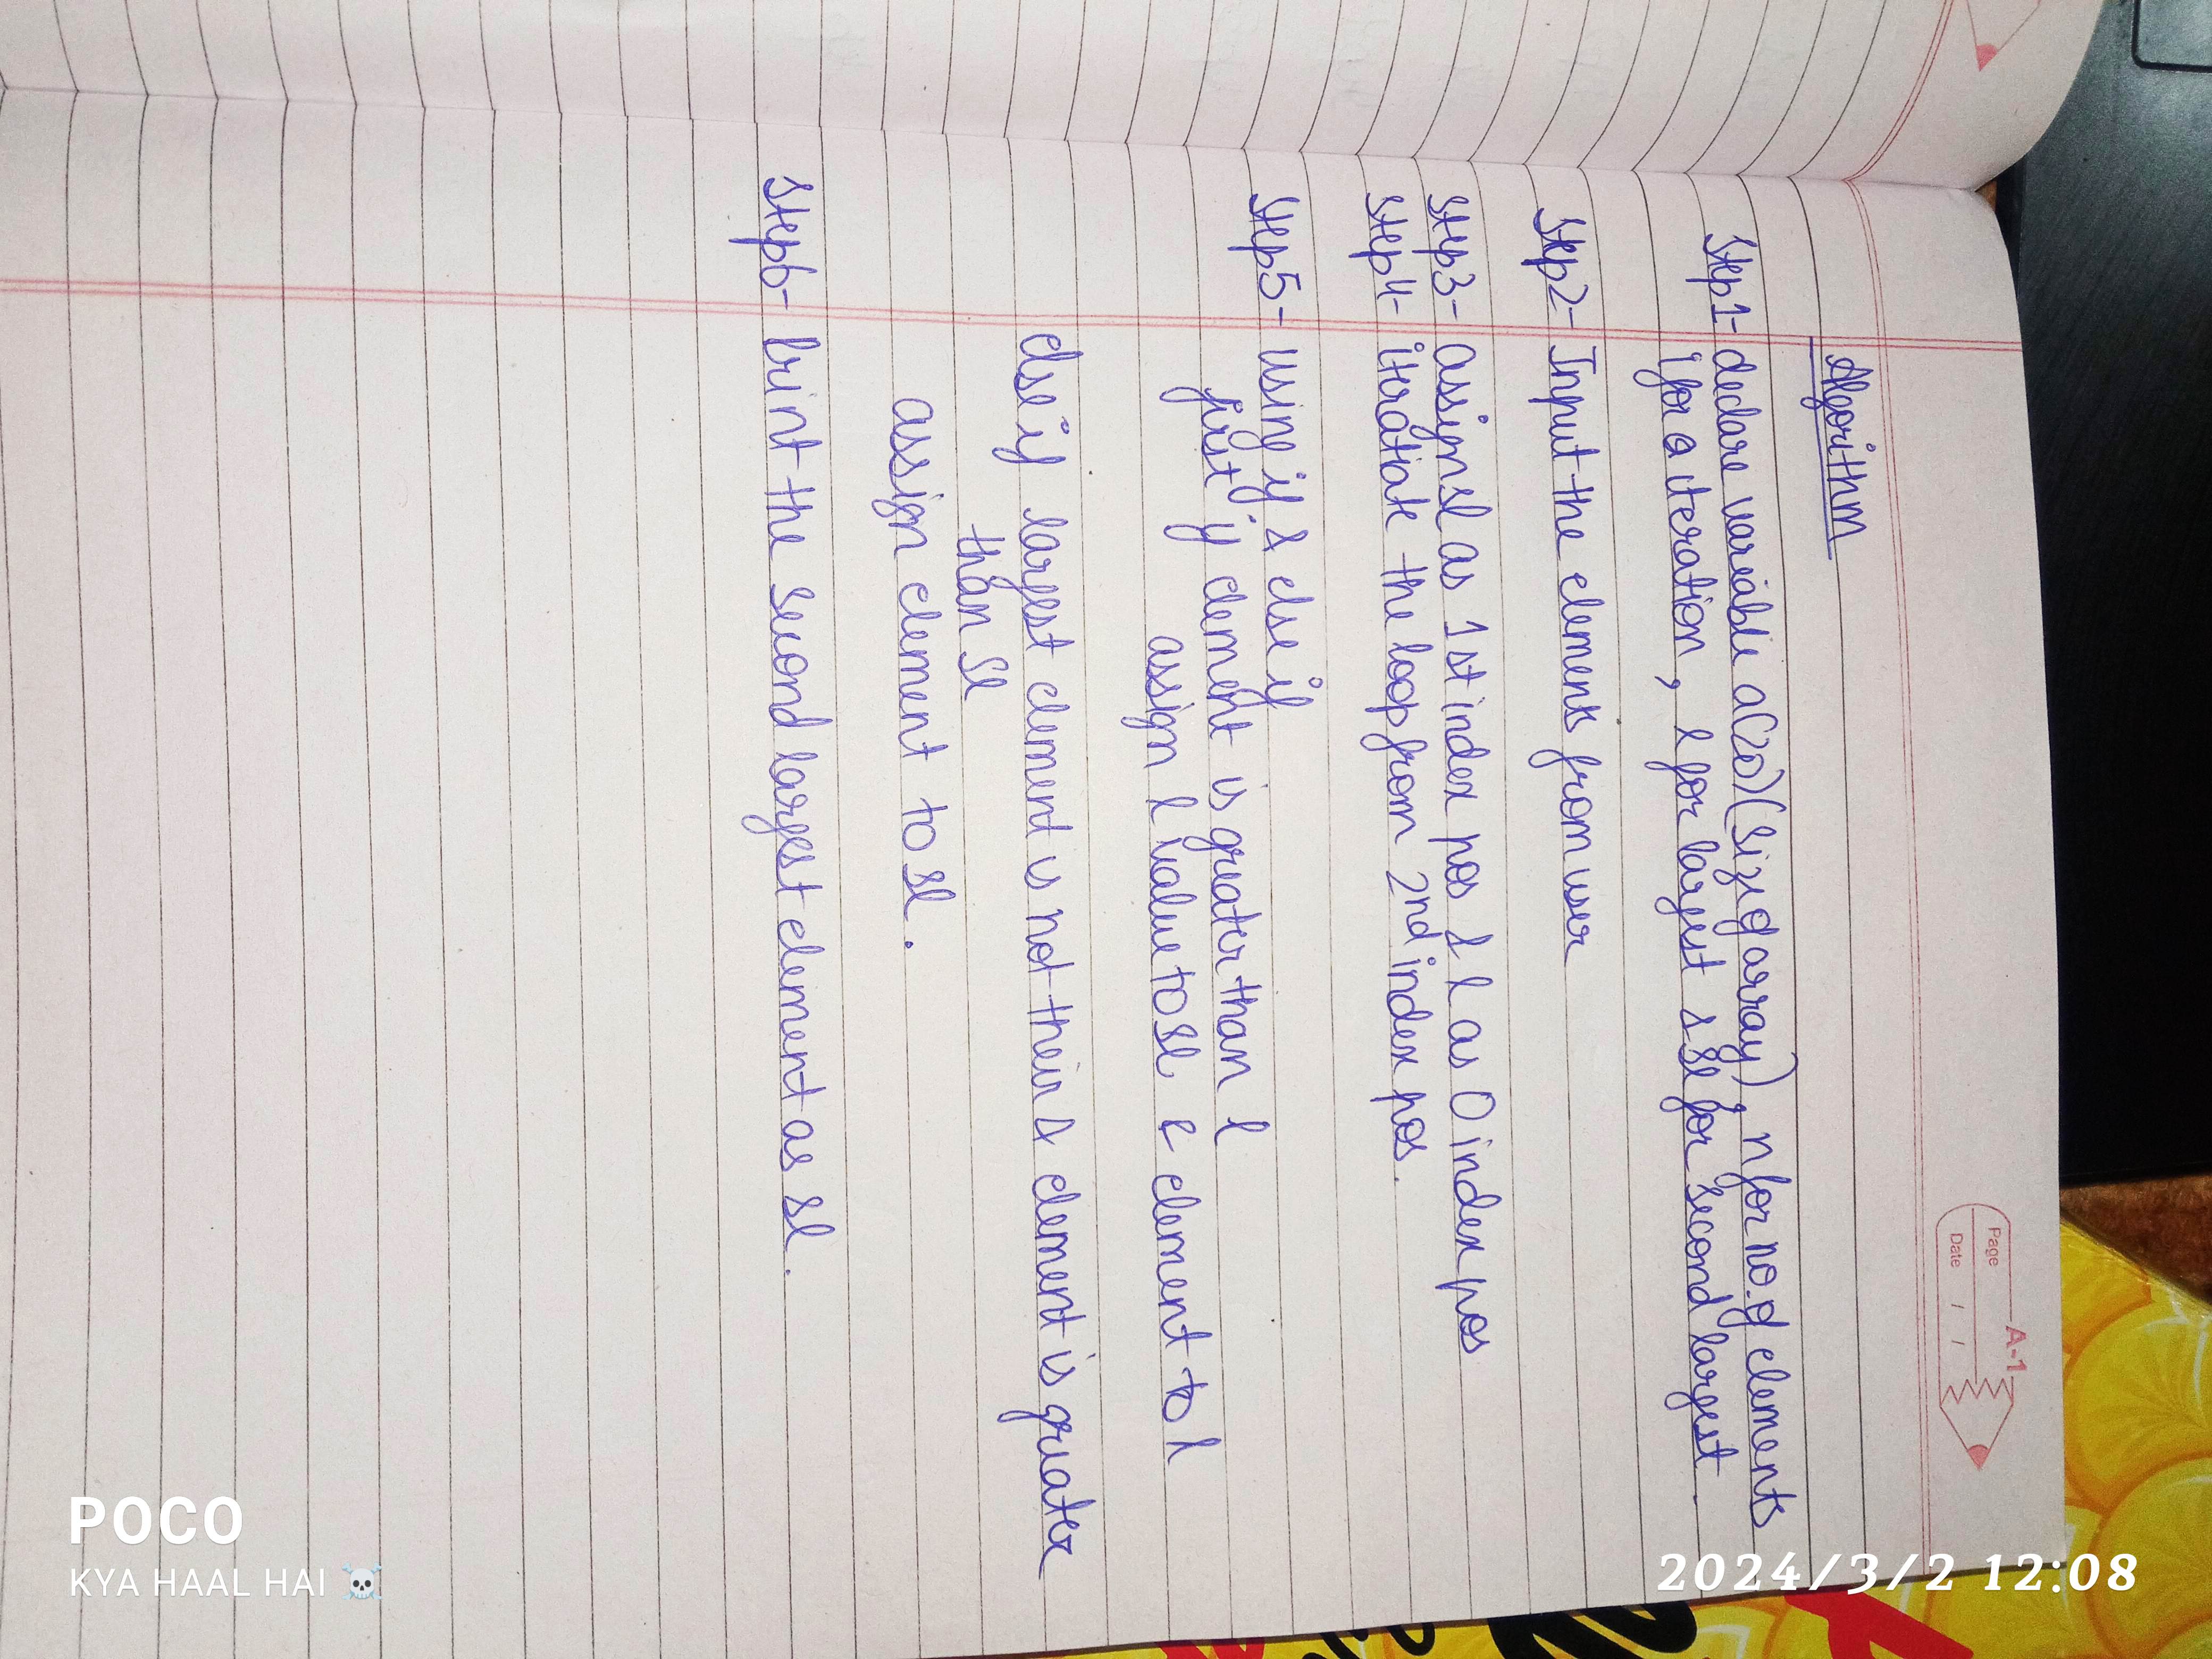 A-1
Page
Date / /
Algorithm
Step1- declare variable a(20)(size of array), n for no. of elements
i for a iteration, l for largest & sl for second largest.
Step2- Input the elements from user
Step3- assign sl as 1st index pos & l as 0 index pos
Step4- iteratiate the loop from 2nd index pos.
Step5- using if & else if
first if element is greater than l
assign l value to sl & element to l
else if largest element is not their & element is greater
than sl
assign element to sl.
Step6- print the second largest element as sl.
POCO
KYA HAAL HAI ☠️
2024/3/2 12:08